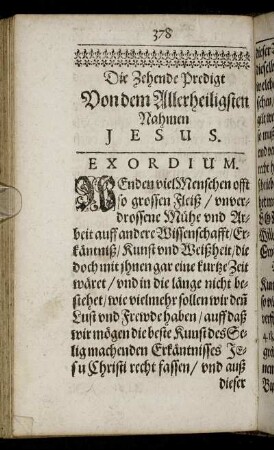 378
Die Zehende Predigt
Von dem Allerheiligsten
Nahmen
JESUS.
EXORDIUM.
WEnden viel Menschen offt
so grossen Fleiß / vnver-
drossene Mühe vnd Ar-
beit auff andere Wissenschafft / Er-
käntniß / Kunst vnd Weißheit / die
doch mit jhnen gar eine kurtze Zeit
wäret / vnd in die länge nicht be-
stehet / wie vielmehr sollen wir deñ
Lust vnd Frewde haben / auff daß
wir mögen die beste Kunst des See-
lig machenden Erkäntnisses JE-
su Christi recht fassen / vnd auß
dieser